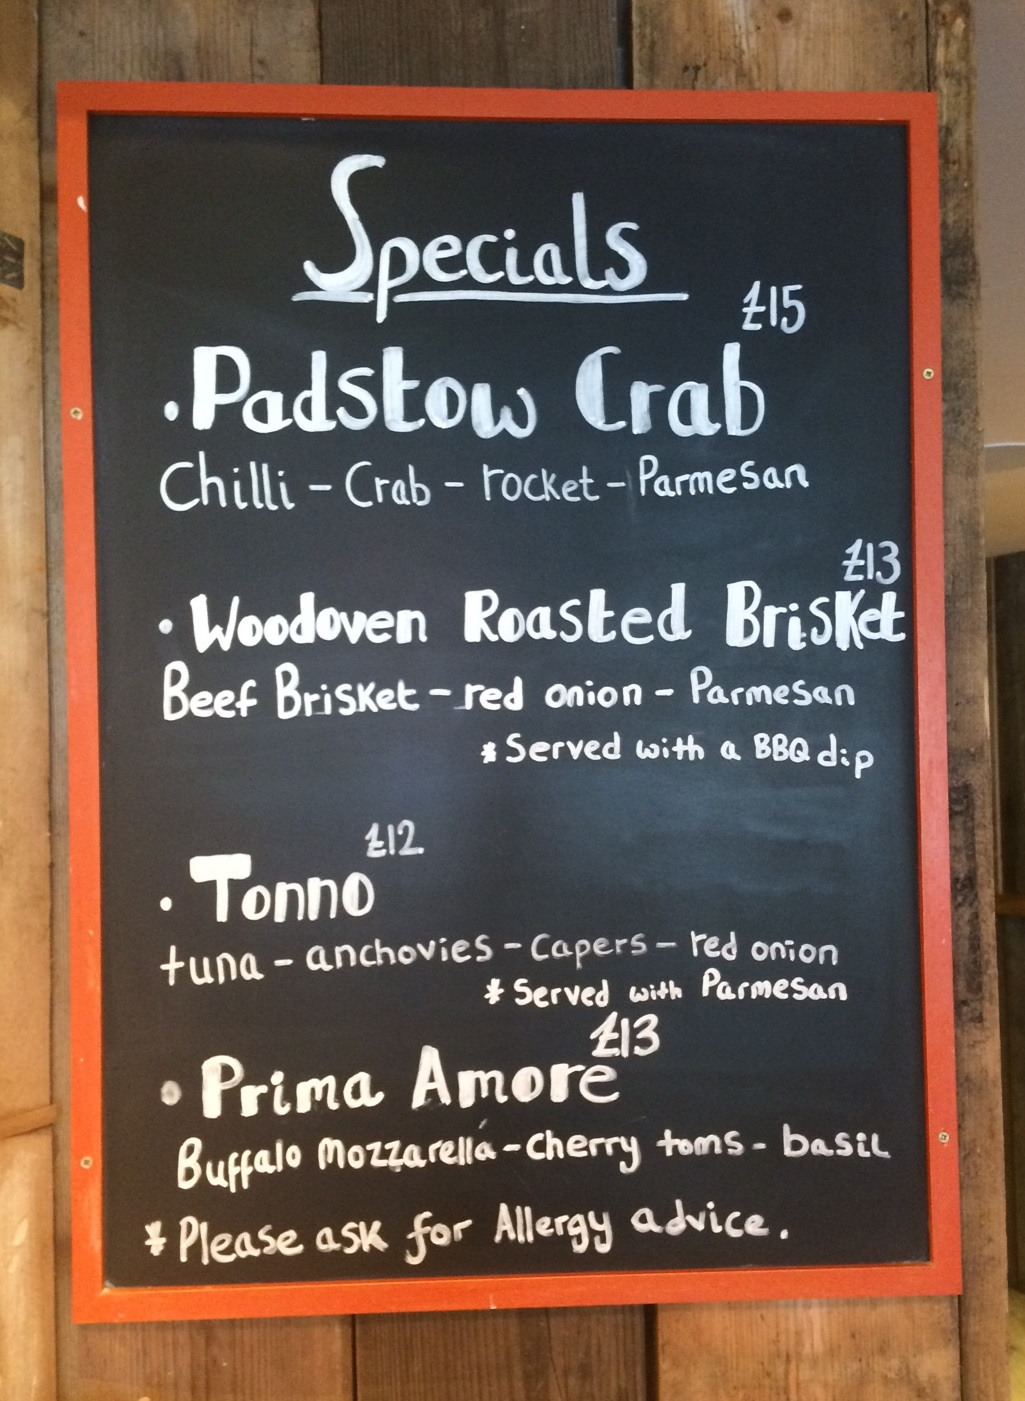 Specials
£15
• Padstow Crab
Chilli - Crab - rocket - Parmesan
£13
• Woodoven Roasted Brisket
Beef Brisket - red onion - Parmesan
* Served with a BBQ dip
£12
• Tonno
tuna - anchovies - capers - red onion
* Served with Parmesan
£13
• Prima Amore
Buffalo Mozzarella - cherry toms - basil
* Please ask for Allergy advice.